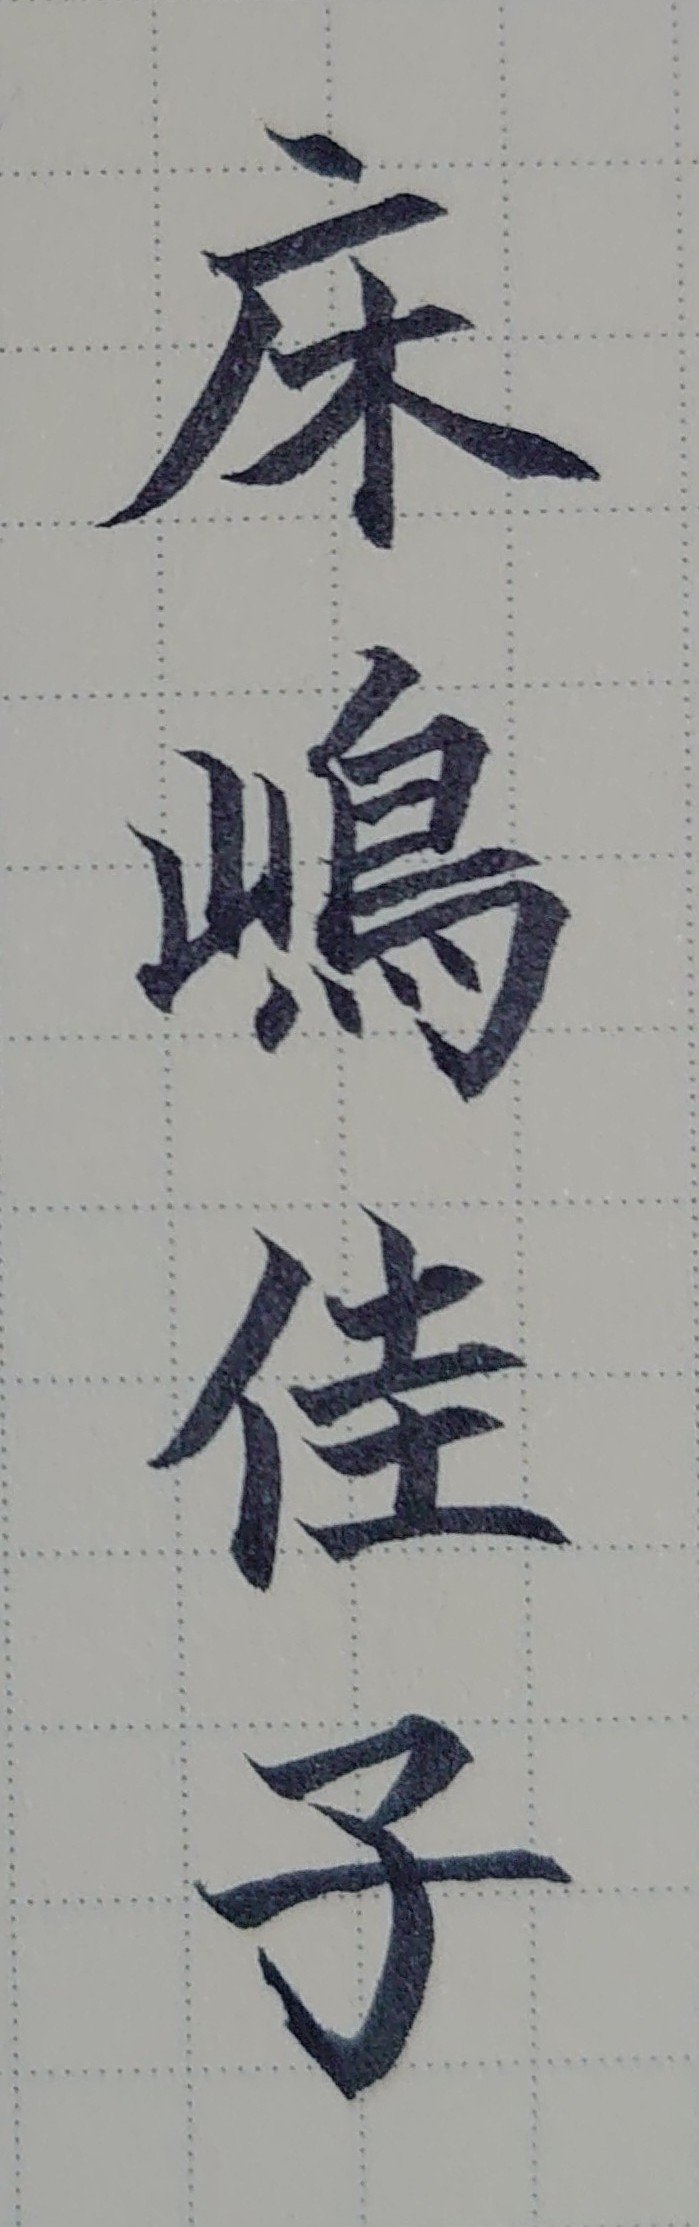 床嶋佳子